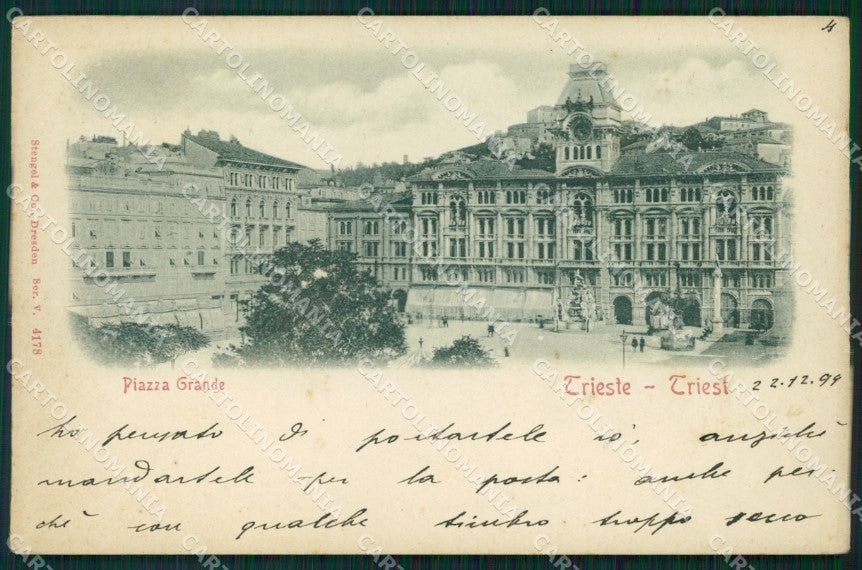 Stengel & Co., Dresden Ser. V. 4178
Piazza Grande
Trieste - Triest
22.12.99
ho pensato di portartele io, anzichè
mandartele per la posta: anche per-
chè con qualche timbro troppo secco
CARTOLINOMANIA